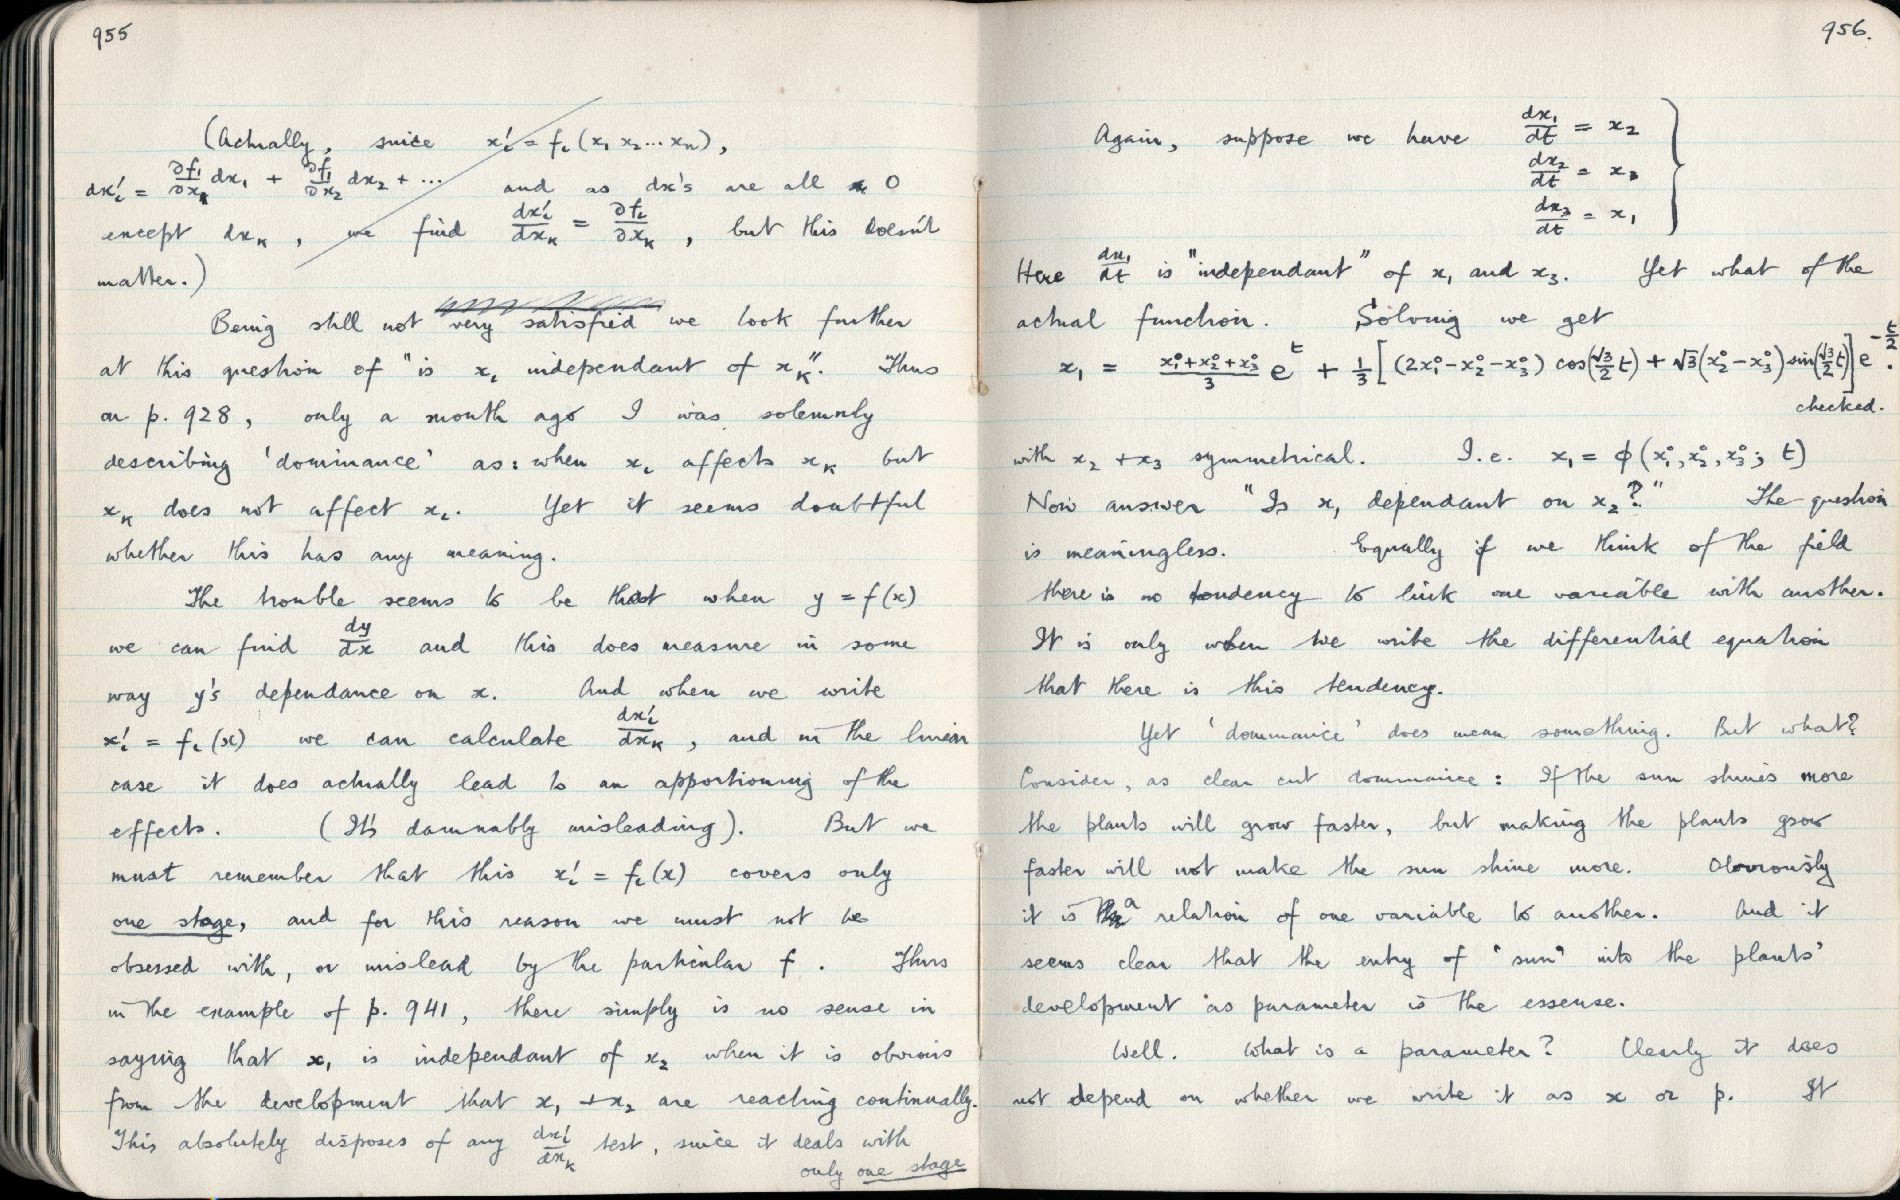 955
(Actually, since x'ᵢ = fᵢ(x₁ x₂ ... xₙ),
dx'ᵢ = ∂f₁/∂xₖ dx₁ + ∂f₁/∂x₂ dx₂ + ... and as dx's are all 0
except dxₖ, we find dx'ᵢ/dxₖ = ∂fᵢ/∂xₖ, but this doesn't
matter.)
Being still not very satisfied we look further
at this question of "is xᵢ independant of xₖ". Thus
on p. 928, only a month ago I was solemnly
describing 'dominance' as: when xᵢ affects xₖ but
xₖ does not affect xᵢ. Yet it seems doubtful
whether this has any meaning.
The trouble seems to be that when y = f(x)
we can find dy/dx and this does measure in some
way y's dependance on x. And when we write
x'ᵢ = fᵢ(x) we can calculate dx'ᵢ/dxₖ, and in the linear
case it does actually lead to an apportioning of the
effects. (It's damnably misleading). But we
must remember that this x'ᵢ = fᵢ(x) covers only
one stage, and for this reason we must not be
obsessed with, or mislead by the particular f. Thus
in the example of p. 941, there simply is no sense in
saying that x₁ is independant of x₂ when it is obvious
from the development that x₁ + x₂ are reacting continually.
This absolutely disposes of any dx'ᵢ/dxₖ test, since it deals with
only one stage
956.
Again, suppose we have dx₁/dt = x₂
dx₂/dt = x₃
dx₃/dt = x₁
Here dx₁/dt is "independant" of x₁ and x₃. Yet what of the
actual function. Solving we get
x₁ = (x₁°+x₂°+x₃°)/3 e^t + 1/3[(2x₁°−x₂°−x₃°) cos(√3/2 t) + √3(x₂°−x₃°) sin(√3/2 t)]e^(−t/2).
checked.
with x₂ + x₃ symmetrical. I.e. x₁ = ϕ(x₁°, x₂°, x₃°; t)
Now answer "Is x₁ dependant on x₂?" The question
is meaningless. Equally if we think of the field
there is no tendency to link one variable with another.
It is only when we write the differential equation
that there is this tendency.
Yet 'dominance' does mean something. But what?
Consider, as clear cut dominance: If the sun shines more
the plants will grow faster, but making the plants grow
faster will not make the sun shine more. Obviously
it is a relation of one variable to another. And it
seems clear that the entry of 'sun' into the plants'
development as parameter is the essense.
Well. What is a parameter? Clearly it does
not depend on whether we write it as x or p. It